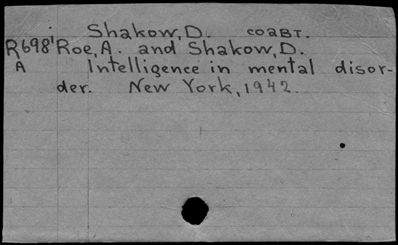 Shakow, D. соавт.
R698¹ Roe, A. and Shakow, D.
A Intelligence in mental disor-
der. New York, 1942.